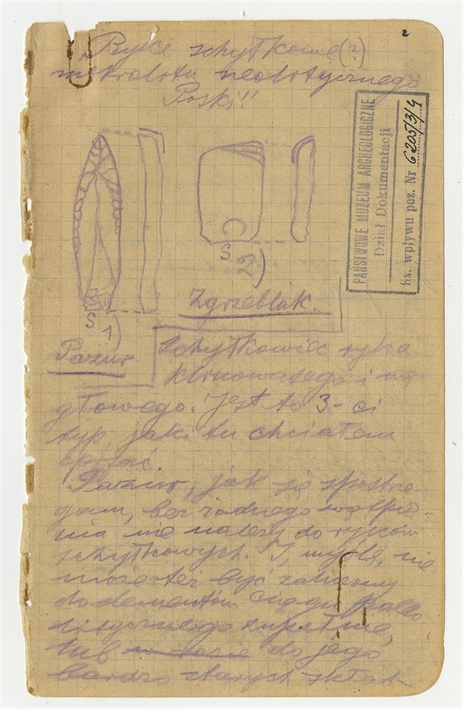 2
„Rylce schyłkowe(?)
makrolitu neolitycznego
Polski"
PAŃSTWOWE MUZEUM ARCHEOLOGICZNE
Dział Dokumentacji
ks. wpływu poz. Nr 6205/3/4
S 1)
S 2)
Zgrzeblak.
Pazur
Schyłkowiec rylca
klinowatego i wę
głowego. jest to 3-ci
typ, jaki tu chciałem
opisać.
Pazur, jak się spostrze
gam, bez żadnego wątpie-
nia nie należy do rylców
schyłkowych. I, myślę, nie
może też być zaliczony
do elementów ciągu
zupełnie,
lub do jego
bardzo starych